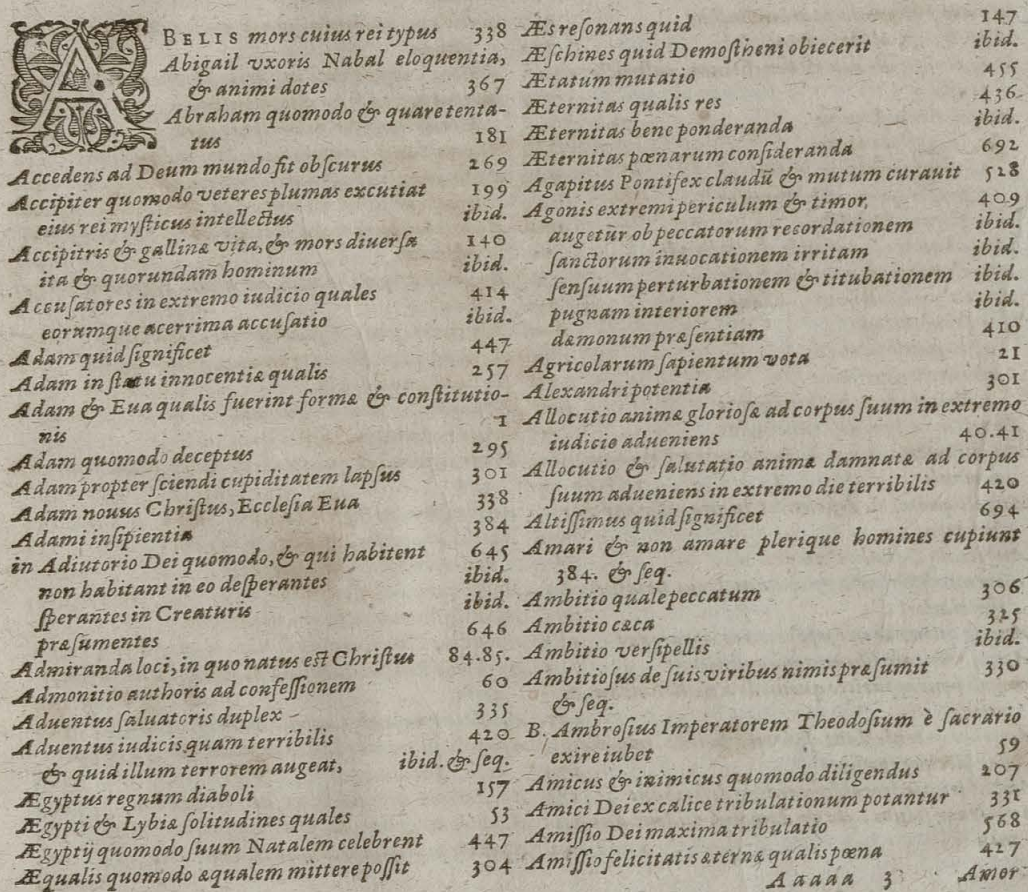 ABELIS mors cuius rei typus 338
Abigail vxoris Nabal eloquentia,
& animi dotes 367
Abraham quomodo & quare tenta-
tus 181
Accedens ad Deum mundo fit obſcurus 269
Accipiter quomodo veteres plumas excutiat 199
eius rei myſticus intellectus ibid.
Accipitris & gallinæ vita, & mors diuerſa 140
ita & quorundam hominum ibid.
Accuſatores in extremo iudicio quales 414
eorumque acerrima accuſatio ibid.
Adam quid ſignificet 447
Adam in ſtatu innocentiæ qualis 257
Adam & Eua qualis fuerint formæ & conſtitutio-
nis 1
Adam quomodo deceptus 295
Adam propter ſciendi cupiditatem lapſus 301
Adam nouus Chriſtus, Eccleſia Eua 338
Adami inſipientia 384
in Adiutorio Dei quomodo, & qui habitent 645
non habitant in eo deſperantes ibid.
ſperantes in Creaturis ibid.
præſumentes 646
Admiranda loci, in quo natus eſt Chriſtus 84.85.
Admonitio authoris ad confeſſionem 60
Aduentus ſaluatoris duplex 335
Aduentus iudicis quam terribilis 420
& quid illum terrorem augeat, ibid. & ſeq.
Ægyptus regnum diaboli 157
Ægypti & Lybiæ ſolitudines quales 53
Ægyptij quomodo ſuum Natalem celebrent 447
Æqualis quomodo æqualem mittere poſſit 304
Æs reſonans quid 147
Æſchines quid Demoſtheni obiecerit ibid.
Ætatum mutatio 455
Æternitas qualis res 436
Æternitas bene ponderanda ibid.
Æternitas pœnarum conſideranda 692
Agapitus Pontifex claudū & mutum curauit 528
Agonis extremi periculum & timor, 409
augetur ob peccatorum recordationem ibid.
ſanctorum inuocationem irritam ibid.
ſenſuum perturbationem & titubationem ibid.
pugnam interiorem ibid.
dæmonum præſentiam 410
Agricolarum ſapientum vota 21
Alexandri potentia 301
Allocutio animæ glorioſæ ad corpus ſuum in extremo
iudicio adueniens 40.41
Allocutio & ſalutatio animæ damnatæ ad corpus
ſuum adueniens in extremo die terribilis 420
Altiſſimus quid ſignificet 694
Amari & non amare plerique homines cupiunt
384. & ſeq.
Ambitio quale peccatum 306
Ambitio cæca 325
Ambitio verſipellis ibid.
Ambitioſus de ſuis viribus nimis præſumit 330
& ſeq.
B. Ambroſius Imperatorem Theodoſium è ſacrario
exire iubet 59
Amicus & inimicus quomodo diligendus 207
Amici Dei ex calice tribulationum potantur 331
Amiſſio Dei maxima tribulatio 568
Amiſſio felicitatis æternæ qualis pœna 427
Aaaaa 3 Amor